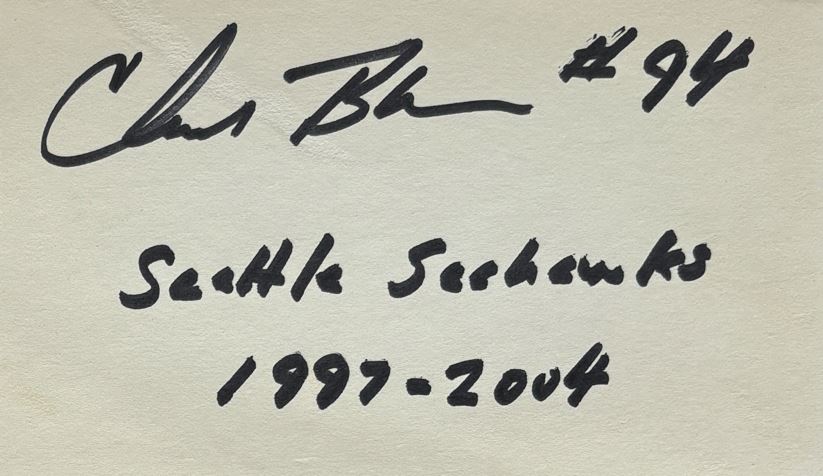 Chad Brown #94
Seattle Seahawks
1997-2004